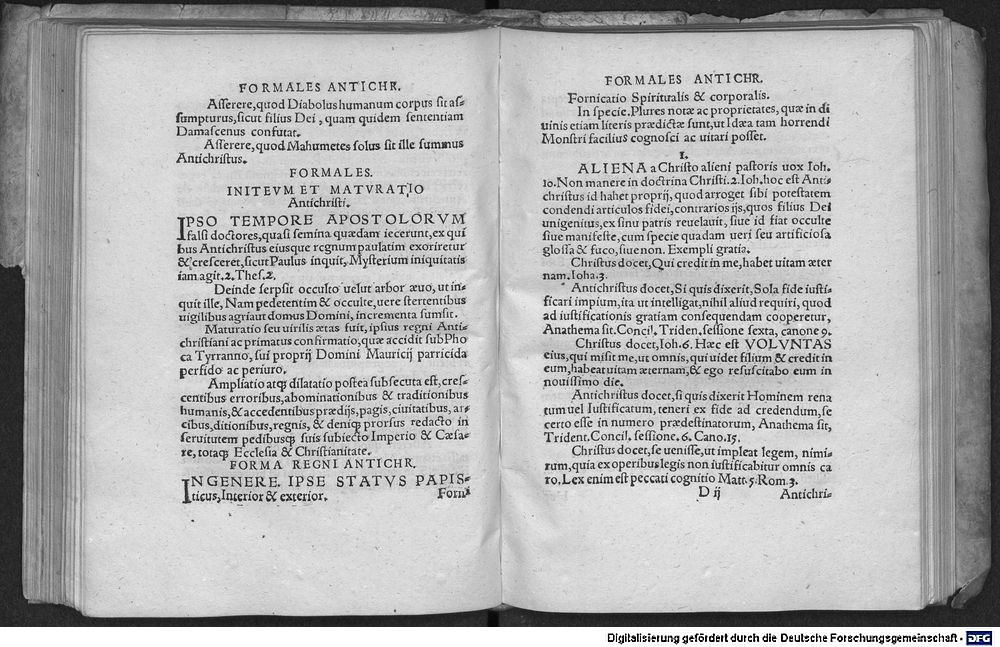 FORMALES ANTICHR.
Asserere, quod Diabolus humanum corpus sit as-
sumpturus, sicut filius Dei, quam quidem sententiam
Damascenus confutat.
Asserere, quod Mahumetes solus sit ille summus
Antichristus.
FORMALES.
INITEVM ET MATVRATIO
Antichristi.
IPSO TEMPORE APOSTOLORVM
falsi doctores, quasi semina quædam iecerunt, ex qui
bus Antichristus eiusque regnum paulatim exoriretur
& cresceret, sicut Paulus inquit, Mysterium iniquitatis
iam agit. 2. Thes. 2.
Deinde serpsit occulto uelut arbor æuo, ut in-
quit ille, Nam pedetentim & occulte, uere stertentibus
uigilibus agri aut domus Domini, incrementa sumsit.
Maturatio seu uirilis ætas fuit, ipsius regni Anti-
christiani ac primatus confirmatio, quæ accidit sub Pho
ca Tyranno, sui proprij Domini Mauricij parricida
perfido ac periuro.
Ampliatio atq; dilatatio postea subsecuta est, cres-
centibus erroribus, abominationibus & traditionibus
humanis, & accedentibus prædijs, pagis, ciuitatibus, ar-
cibus, ditionibus, regnis, & deniq; prorsus redacto in
seruitutem pedibusq; suis subiecto Imperio & Cæsa-
re, totaq; Ecclesia & Christianitate.
FORMA REGNI ANTICHR.
INGENERE. IPSE STATVS PAPIS-
ticus, Interior & exterior.
Forni
FORMALES ANTICHR.
Fornicatio Spiritualis & corporalis.
In specie. Plures notæ ac proprietates, quæ in di
uinis etiam literis prædictæ sunt, ut Idæa tam horrendi
Monstri facilius cognosci ac uitari posset.
I.
ALIENA a Christo alieni pastoris uox Ioh.
10. Non manere in doctrina Christi. 2. Ioh. hoc est Anti-
christus id habet proprij, quod arroget sibi potestatem
condendi articulos fidei, contrarios ijs, quos filius Dei
unigenitus, ex sinu patris reuelauit, siue id fiat occulte
siue manifeste, cum specie quadam ueri seu artificiosa
glossa & fuco, siue non. Exempli gratia.
Christus docet, Qui credit in me, habet uitam æter
nam. Ioha. 3.
Antichristus docet, Si quis dixerit, Sola fide iusti-
ficari impium, ita ut intelligat, nihil aliud requiri, quod
ad iustificationis gratiam consequendam cooperetur,
Anathema sit. Concil. Triden. sessione sexta, canone 9.
Christus docet, Ioh. 6. Hæc est VOLVNTAS
eius, qui misit me, ut omnis, qui uidet filium & credit in
eum, habeat uitam æternam, & ego resuscitabo eum in
nouissimo die.
Antichristus docet, si quis dixerit Hominem rena
tum uel Iustificatum, teneri ex fide ad credendum, se
certo esse in numero prædestinatorum, Anathema sit,
Trident. Concil. sessione. 6. Cano. 15.
Christus docet, se uenisse, ut impleat legem, nimi-
rum, quia ex operibus legis non iustificabitur omnis ca
ro. Lex enim est peccati cognitio Matt. 5. Rom. 3.
D ij
Antichri-
Digitalisierung gefördert durch die Deutsche Forschungsgemeinschaft - DFG